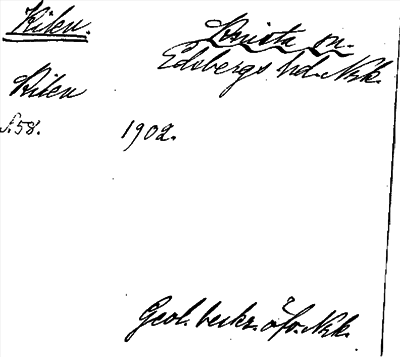 Kilen. Knista sn.
Edsbergs hd. Nrk.
Kilen
s. 58. 1902.
Geol. beskr. öfv. Nrk.